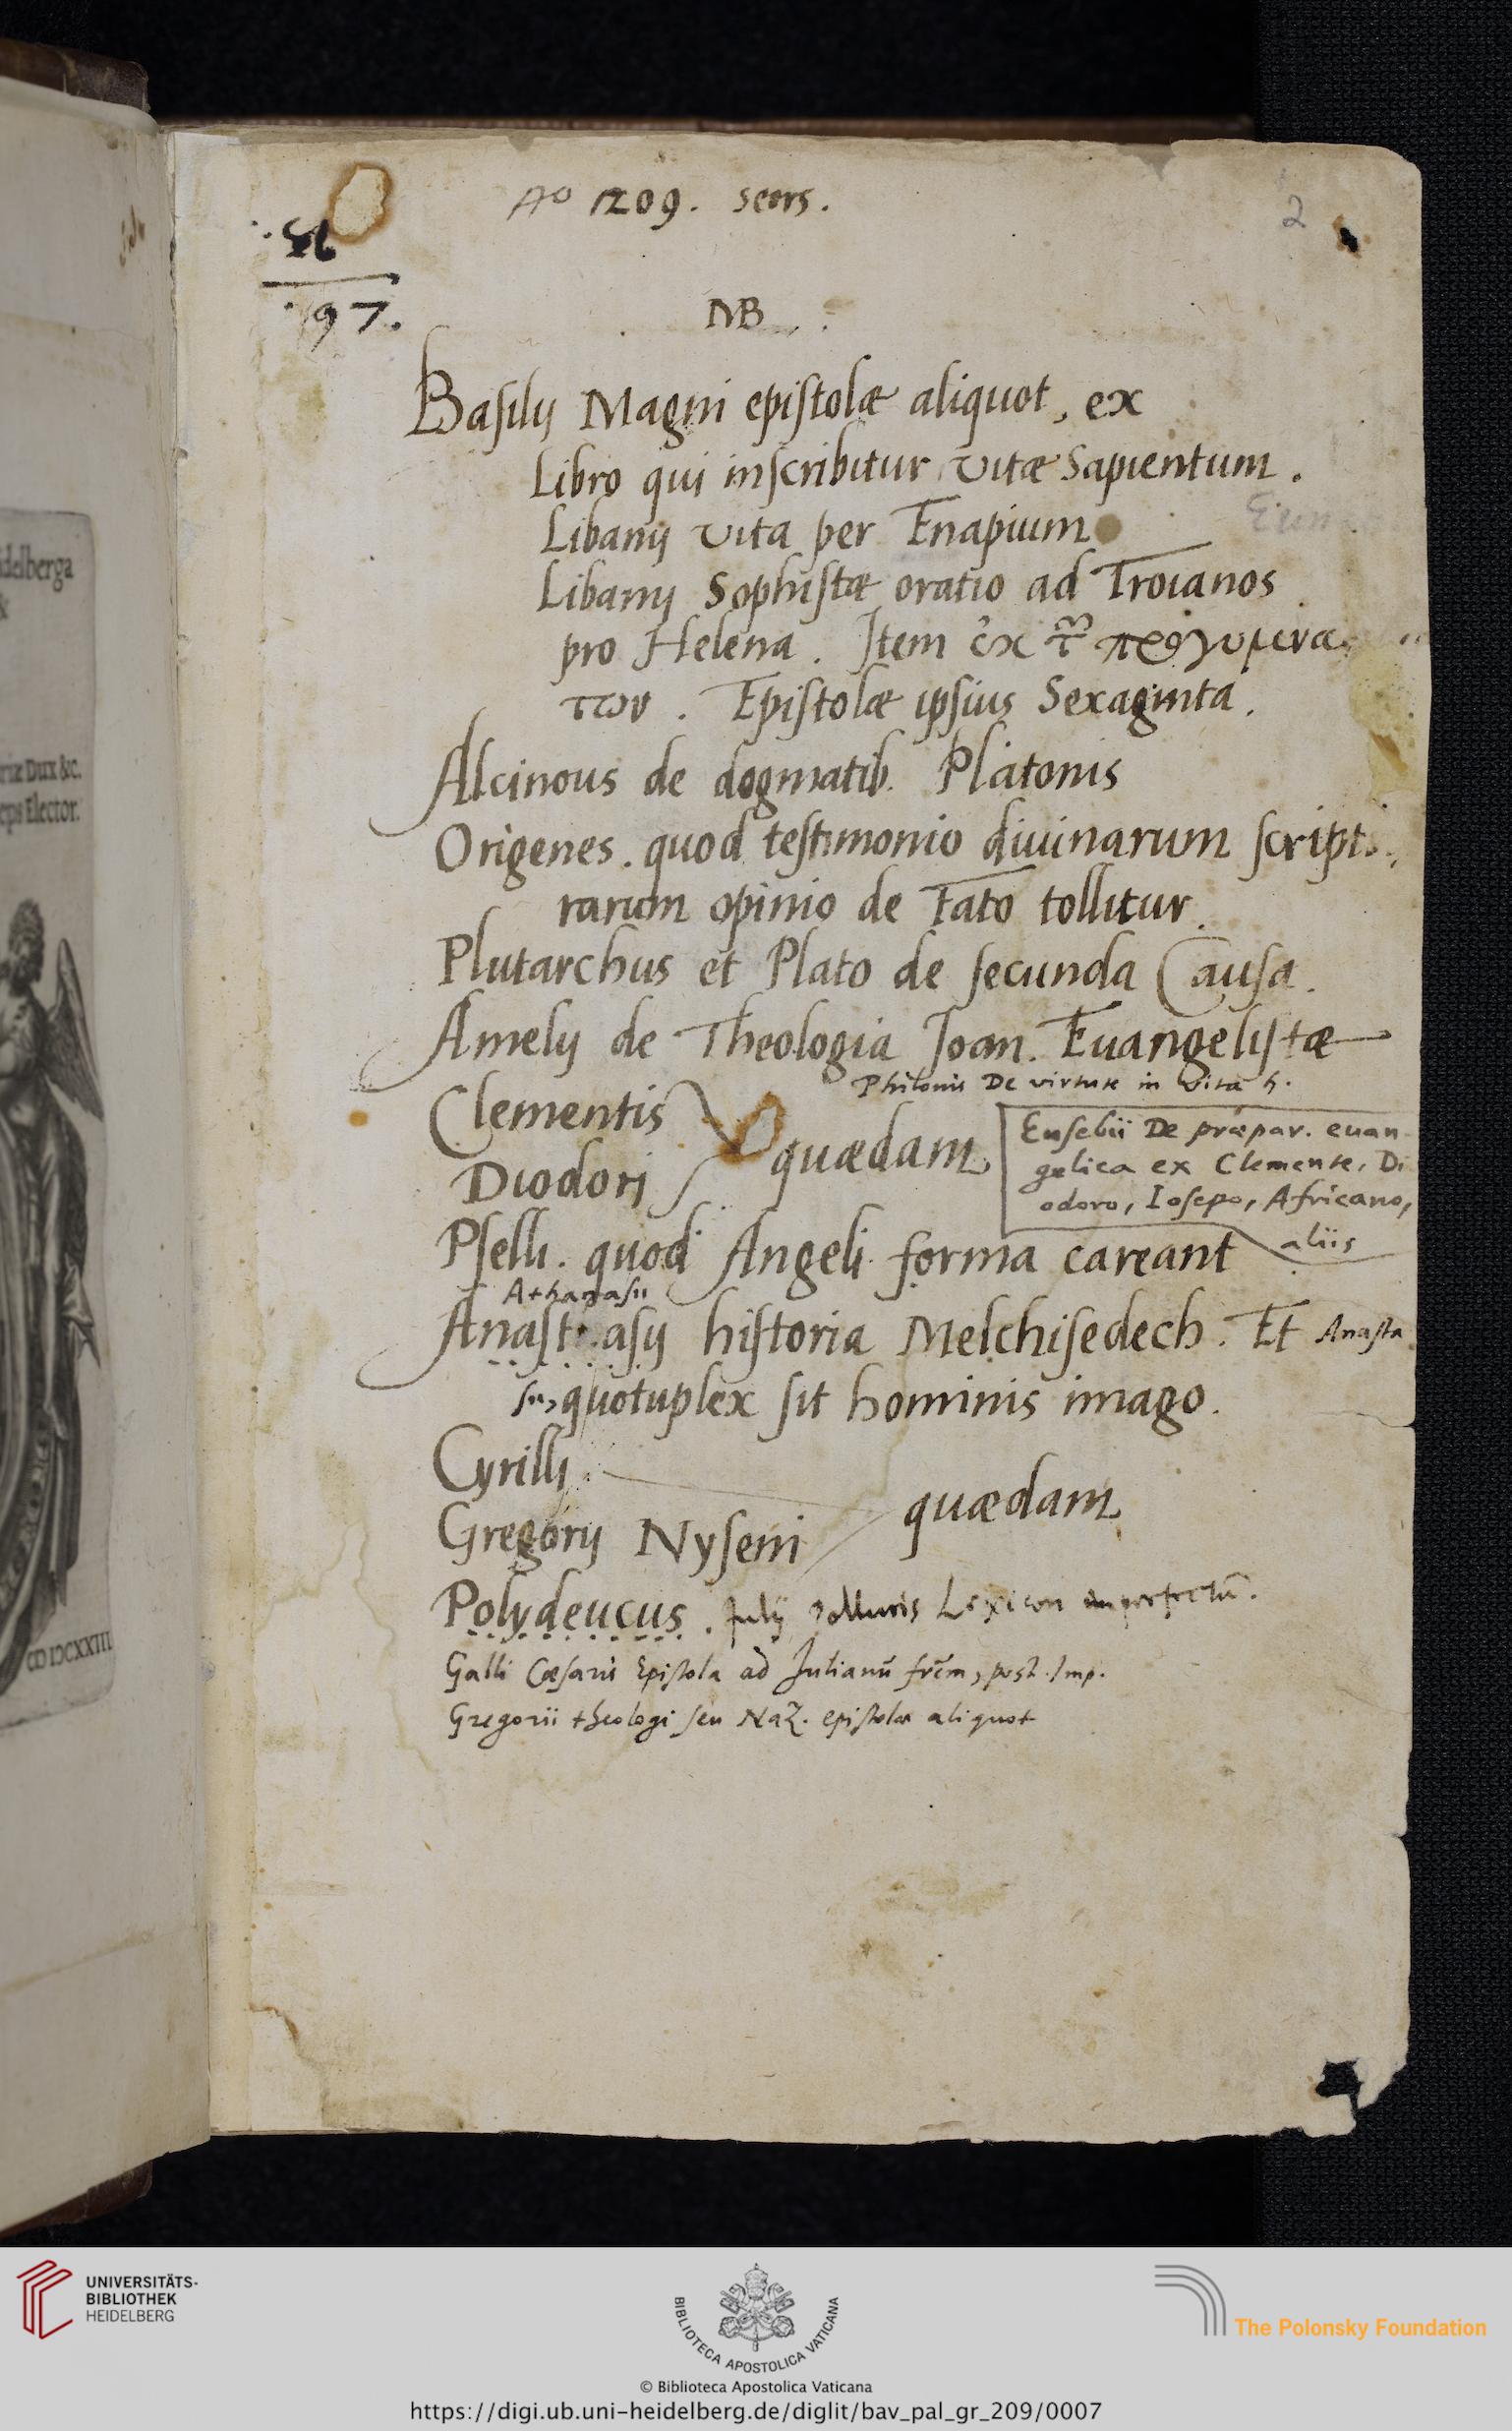 Ao 1209. seors.
2
56
197.
NB
Basilij Magni epistolæ aliquot, ex
Libro qui inscribitur vitæ Sapientum.
Libanij vita per Enapium
Eun
Libanij Sophistæ oratio ad Troianos
pro Helena. Item ἐκ τῶν προγυμνασ
των. Epistolæ ipsius Sexaginta.
Alcinous de dogmatib. Platonis
Origenes. quod testimonio diuinarum scriptu
rarum opinio de Fato tollitur.
Plutarchus et Plato de secunda Causa.
Amelij de Theologia Joan. Euangelistæ
Philonis De virtute in vita h.
Clementis
Diodori
quædam
Eusebii De præpar. euan
gelica ex Clemente, Di
odoro, Iosepo, Africano,
aliis
Pselli. quod Angeli forma careant
Athanasii
Anastasij historia Melchisedech. Et Anasta
sii, quotuplex sit hominis imago.
Cyrilli
Gregorij Nyseni
quædam
Polydeucus. Julij Polluris Lexicon imperfectū.
Galli Cæsaris Epistola ad Julianū frēm, post. Imp.
Gregorii theologi seu Naz. epistolæ aliquot
idelberga
riæ Dux &c.
ceps Elector.
CIↃ IↃCXXIII
UNIVERSITÄTS-
BIBLIOTHEK
HEIDELBERG
BIBLIOTECA APOSTOLICA VATICANA
The Polonsky Foundation
© Biblioteca Apostolica Vaticana
https://digi.ub.uni-heidelberg.de/diglit/bav_pal_gr_209/0007